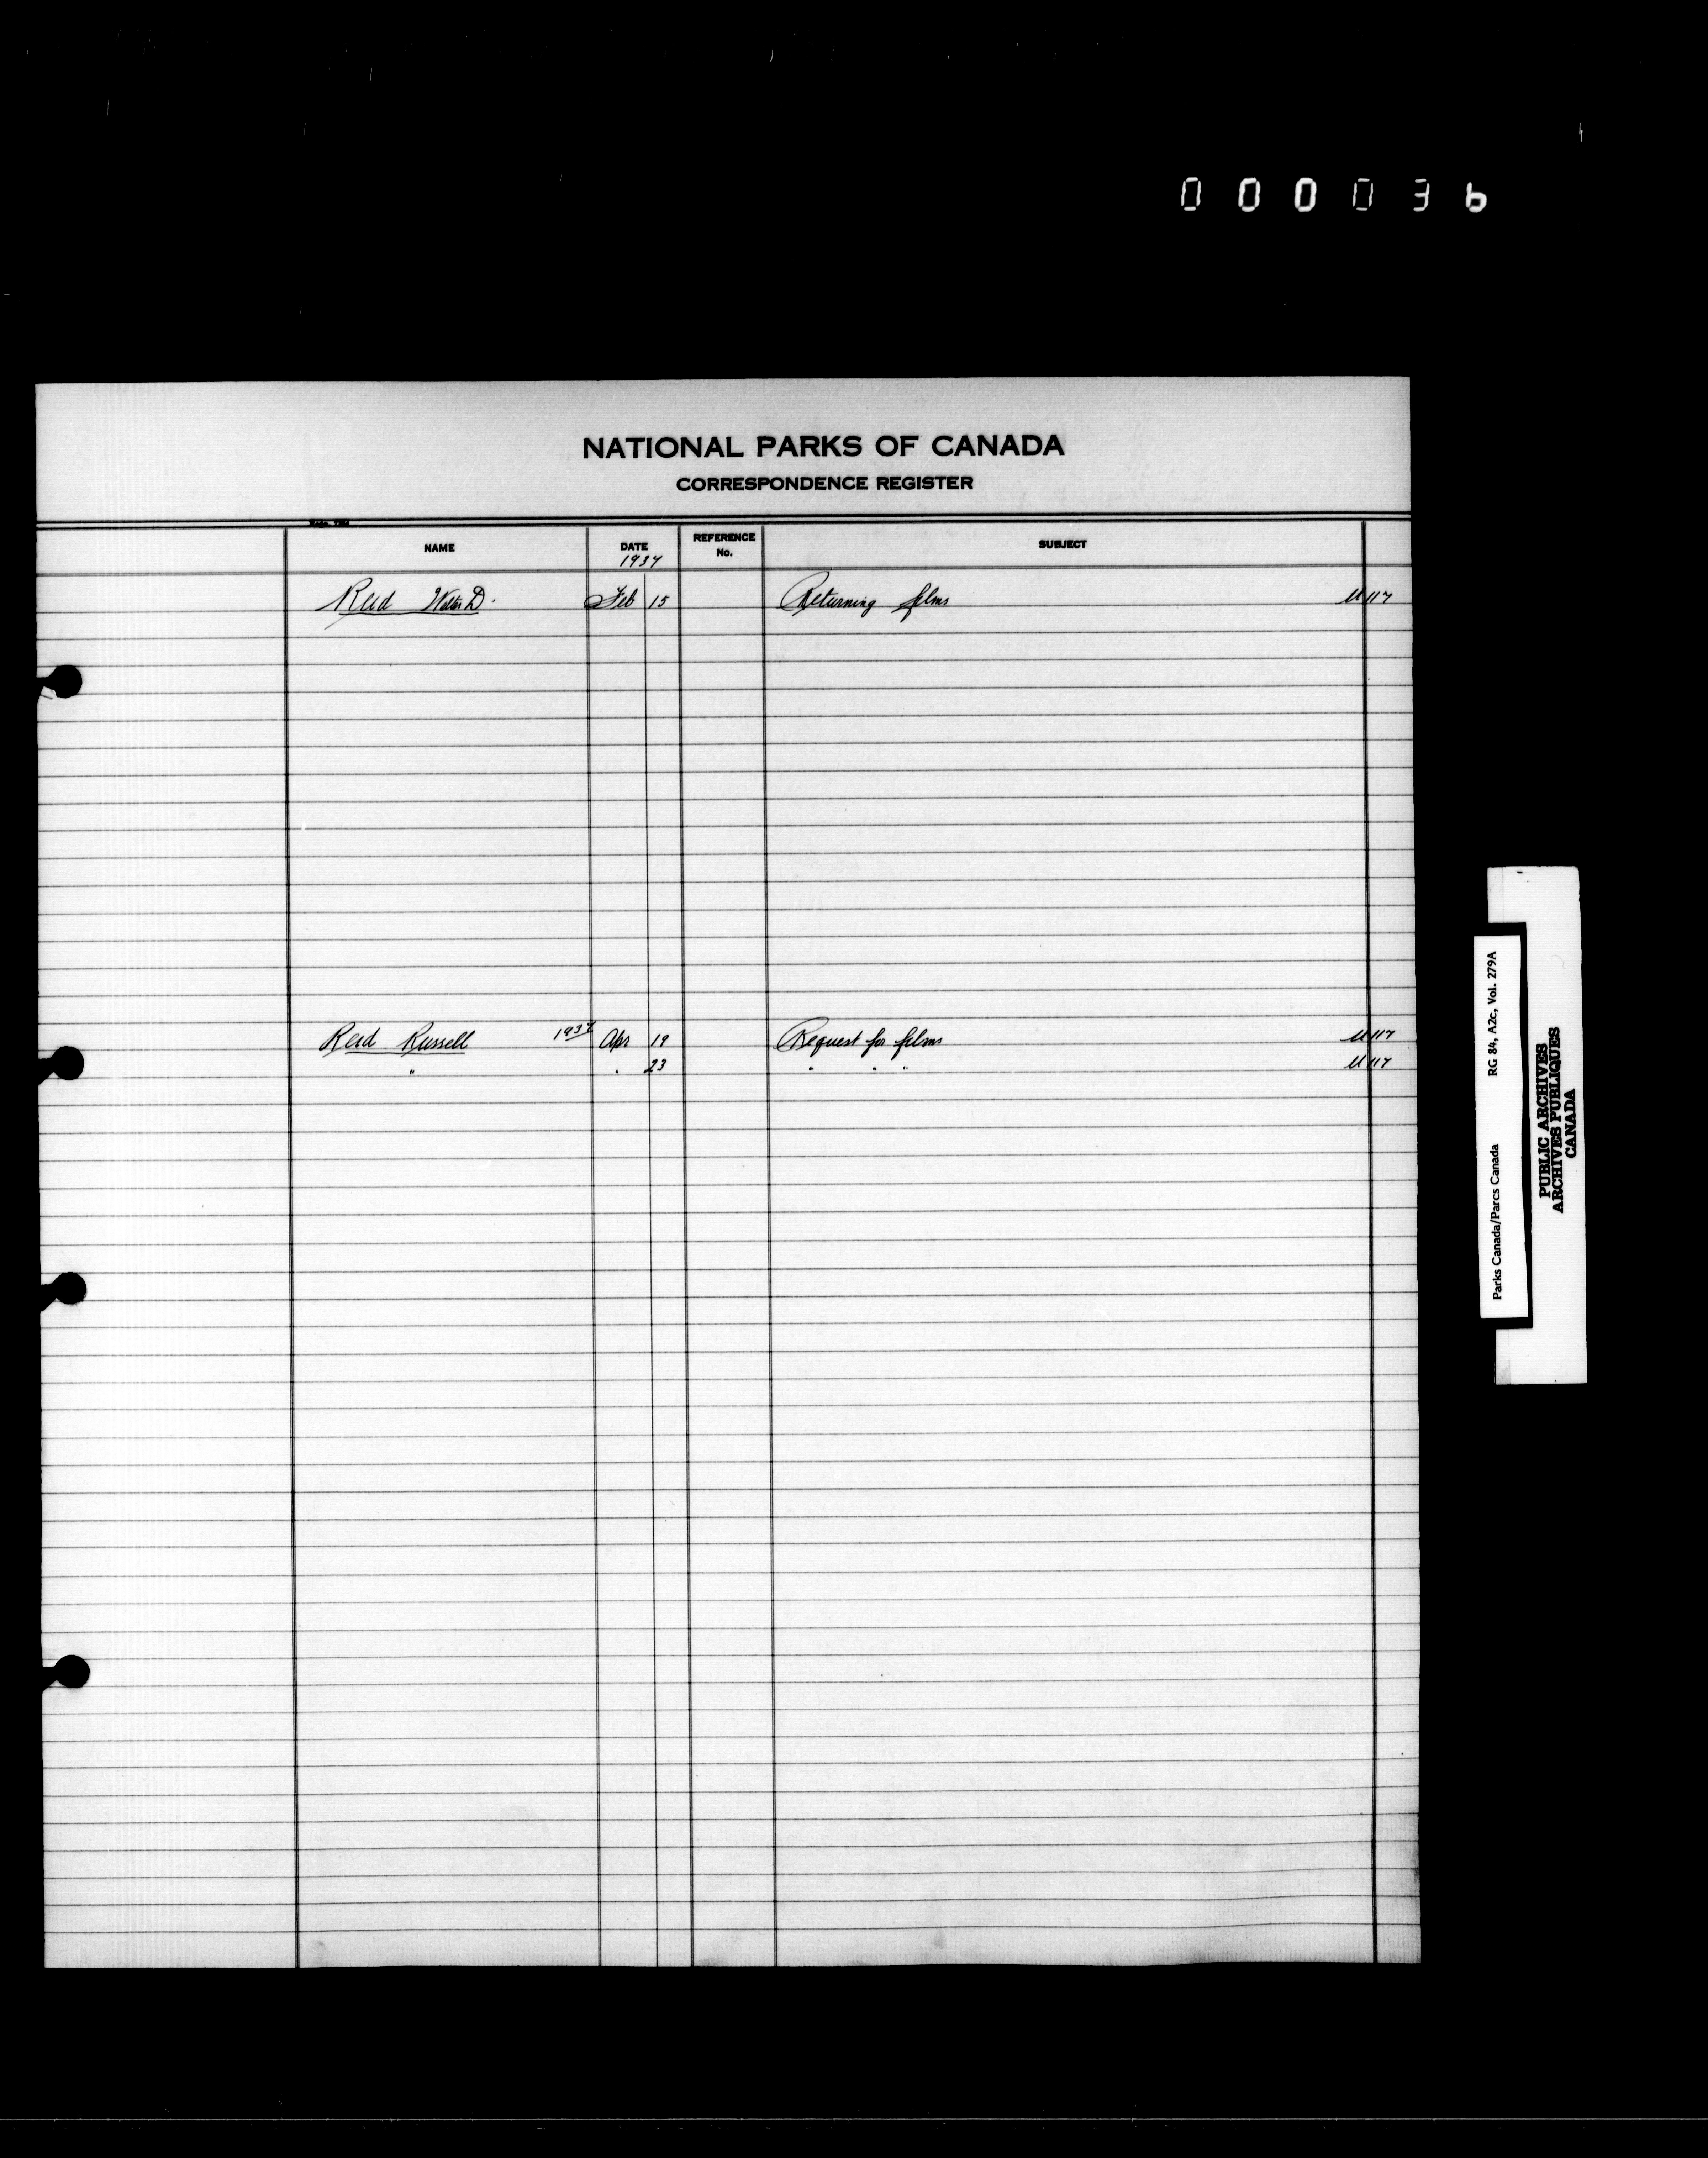 000036
NATIONAL PARKS OF CANADA
CORRESPONDENCE REGISTER
NAME DATE REFERENCE No. SUBJECT
1937
Reid Walter D. Feb 15 Returning films U 117
Reid Russell 1937 Apr 19 Request for films U 117
" " 23 " " " U 117
Parks Canada/Parcs Canada RG 84, A2c, Vol. 279A
PUBLIC ARCHIVES
ARCHIVES PUBLIQUES
CANADA